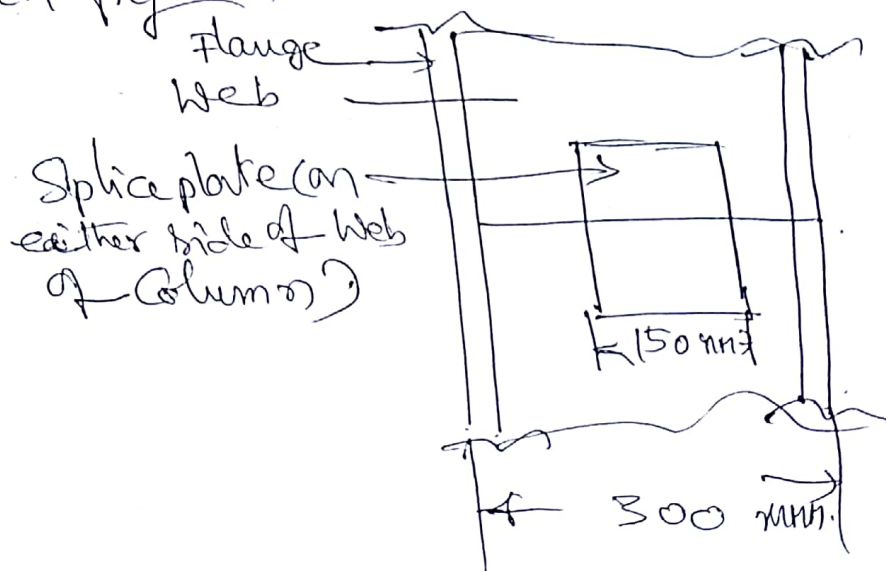 Flange
Web
Splice plate (on
either side of Web
of Column)
150 mm
300 mm.